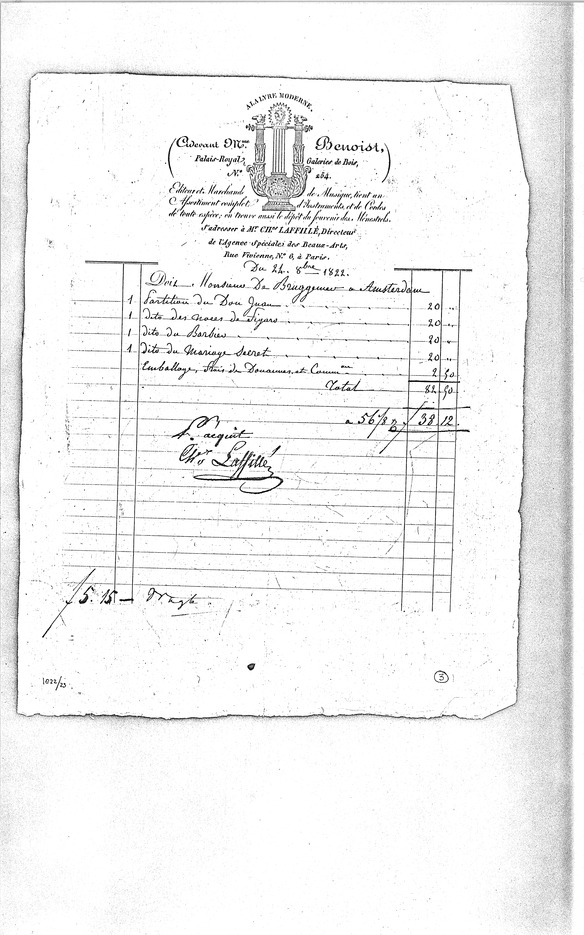 A LA LYRE MODERNE.
Cidevant Mme. Benoist,
Palais-Royal, Galeries de Bois,
N.o 254.
Editeur et Marchand de Musique, tient un
Assortiment complet d'Instruments, et de Cordes
de toute espèce; on trouve aussi le dépôt du souvenir des Ménestrels.
S'adresser à Mr. CHles LAFFILLÉ, Directeur
de l'Agence Spéciale des Beaux-Arts,
Rue Vivienne, N.o 6, à Paris.
Du 24. 8bre 1822.
Doit Monsieur De Bruggemer a Amsterdam
1 Partition du Don Juan 20 "
1 dito des Noces de Figaro 20 "
1 dito du Barbier 20 "
1 dito du Mariage Secret 20 "
Emballage, frais de Douannes et Common 2 50
Total 82 50
a 56 1/8 f 38. 12.
Pr acquit
Chles Laffillé
f 5. 15 — vragt
1022/23
3